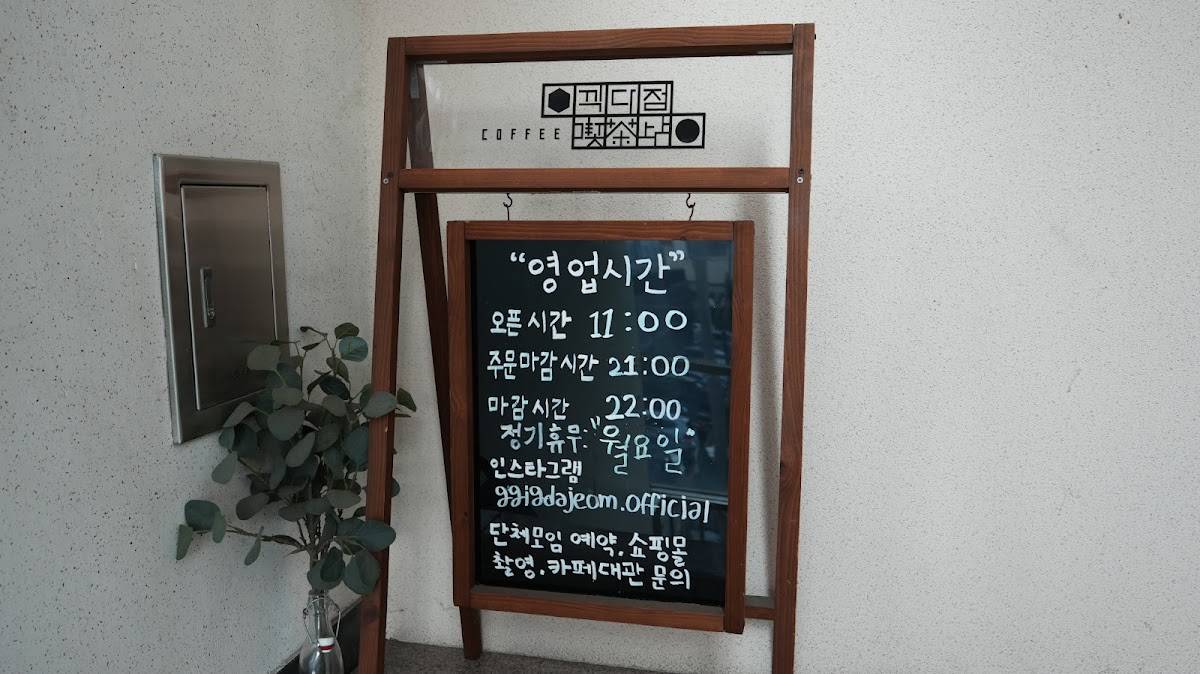 끽다점
COFFEE 喫茶店
“영업시간”
오픈시간 11:00
주문마감시간 21:00
마감시간 22:00
정기휴무: "월요일"
인스타그램
ggigdajeom.official
단체모임 예약.쇼핑몰
촬영.카페대관 문의